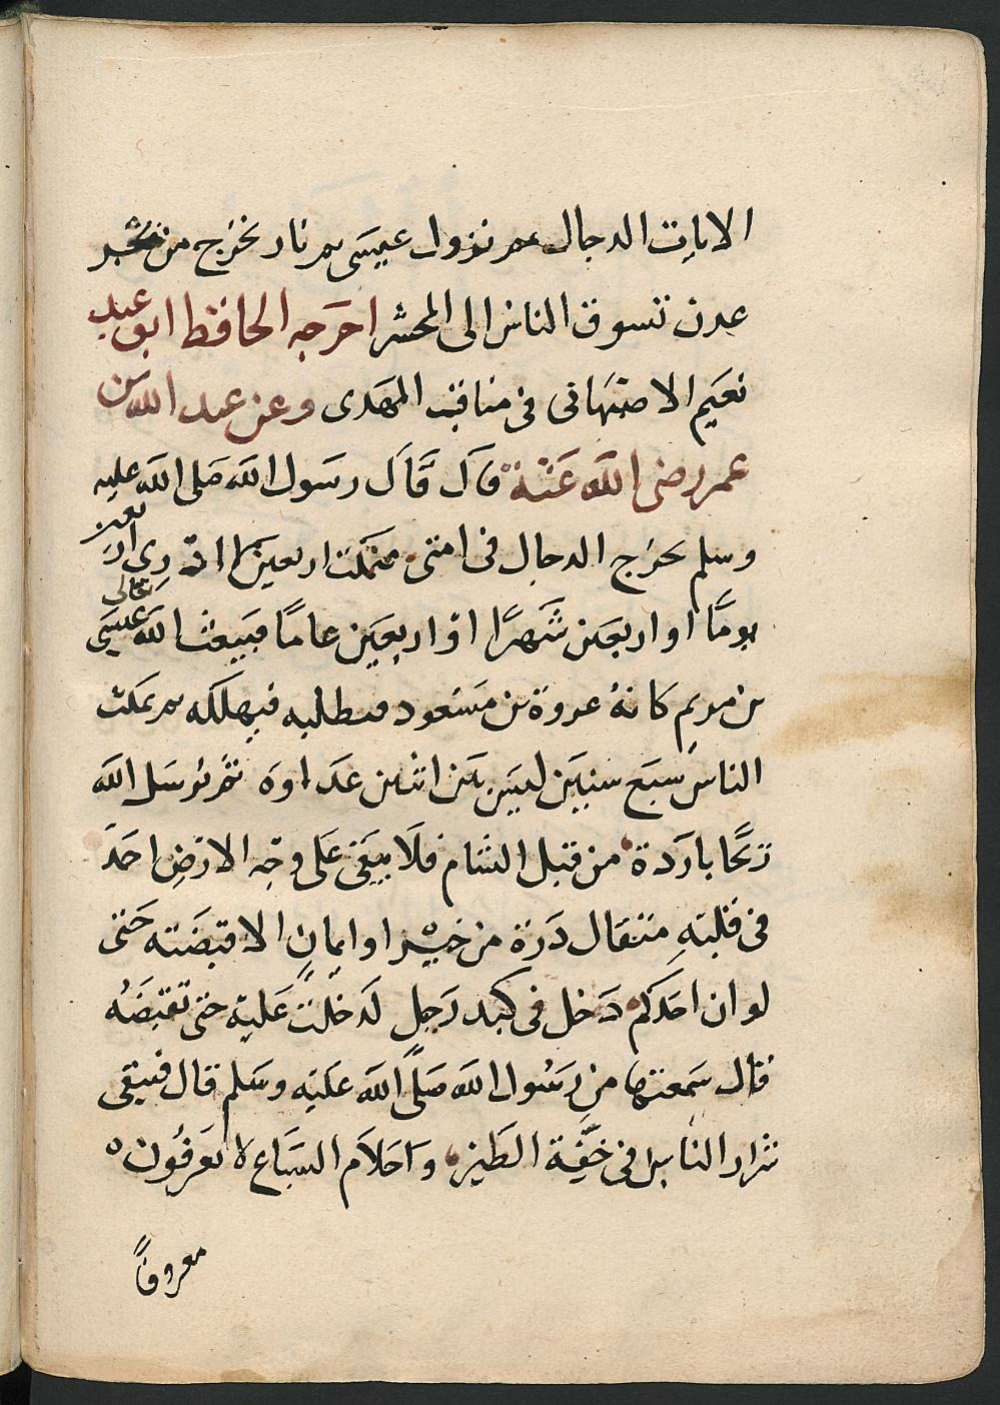 الايات الدجال ثم نزول عيسى ثم نار تخرج من بحر
عدن تسوق الناس الى المحشر اخرجه الحافظ ابو عبد
نعيم الاصبهانى فى مناقب المهدى وعن عبد الله بن
عمر رضى الله عنه قال قال رسول الله صلى الله عليه
وسلم يخرج الدجال فى امتى فيمكث اربعين لا ادرى اربعين
يومًا او اربعين شهرًا او اربعين عامًا فيبعث الله تعالى عيسى
بن مريم كانه عروة بن مسعود فيطلبه فيهلكه ثم يمكث
الناس سبع سنيين ليس بين اثنين عداوة ثم يرسل الله
ريحًا باردة من قبل الشام فلا يبقى على وجه الارض احد
فى قلبه مثقال ذرة من خير او ايمان الا قبضته حتى
لو ان احدكم دخل فى كبد رجل لدخلت عليه حتى تقبضه
قال سمعتها من رسول الله صلى الله عليه وسلم قال فيبقى
شرار الناس فى خفة الطير واحلام السباع لا يعرفون
معروفًا